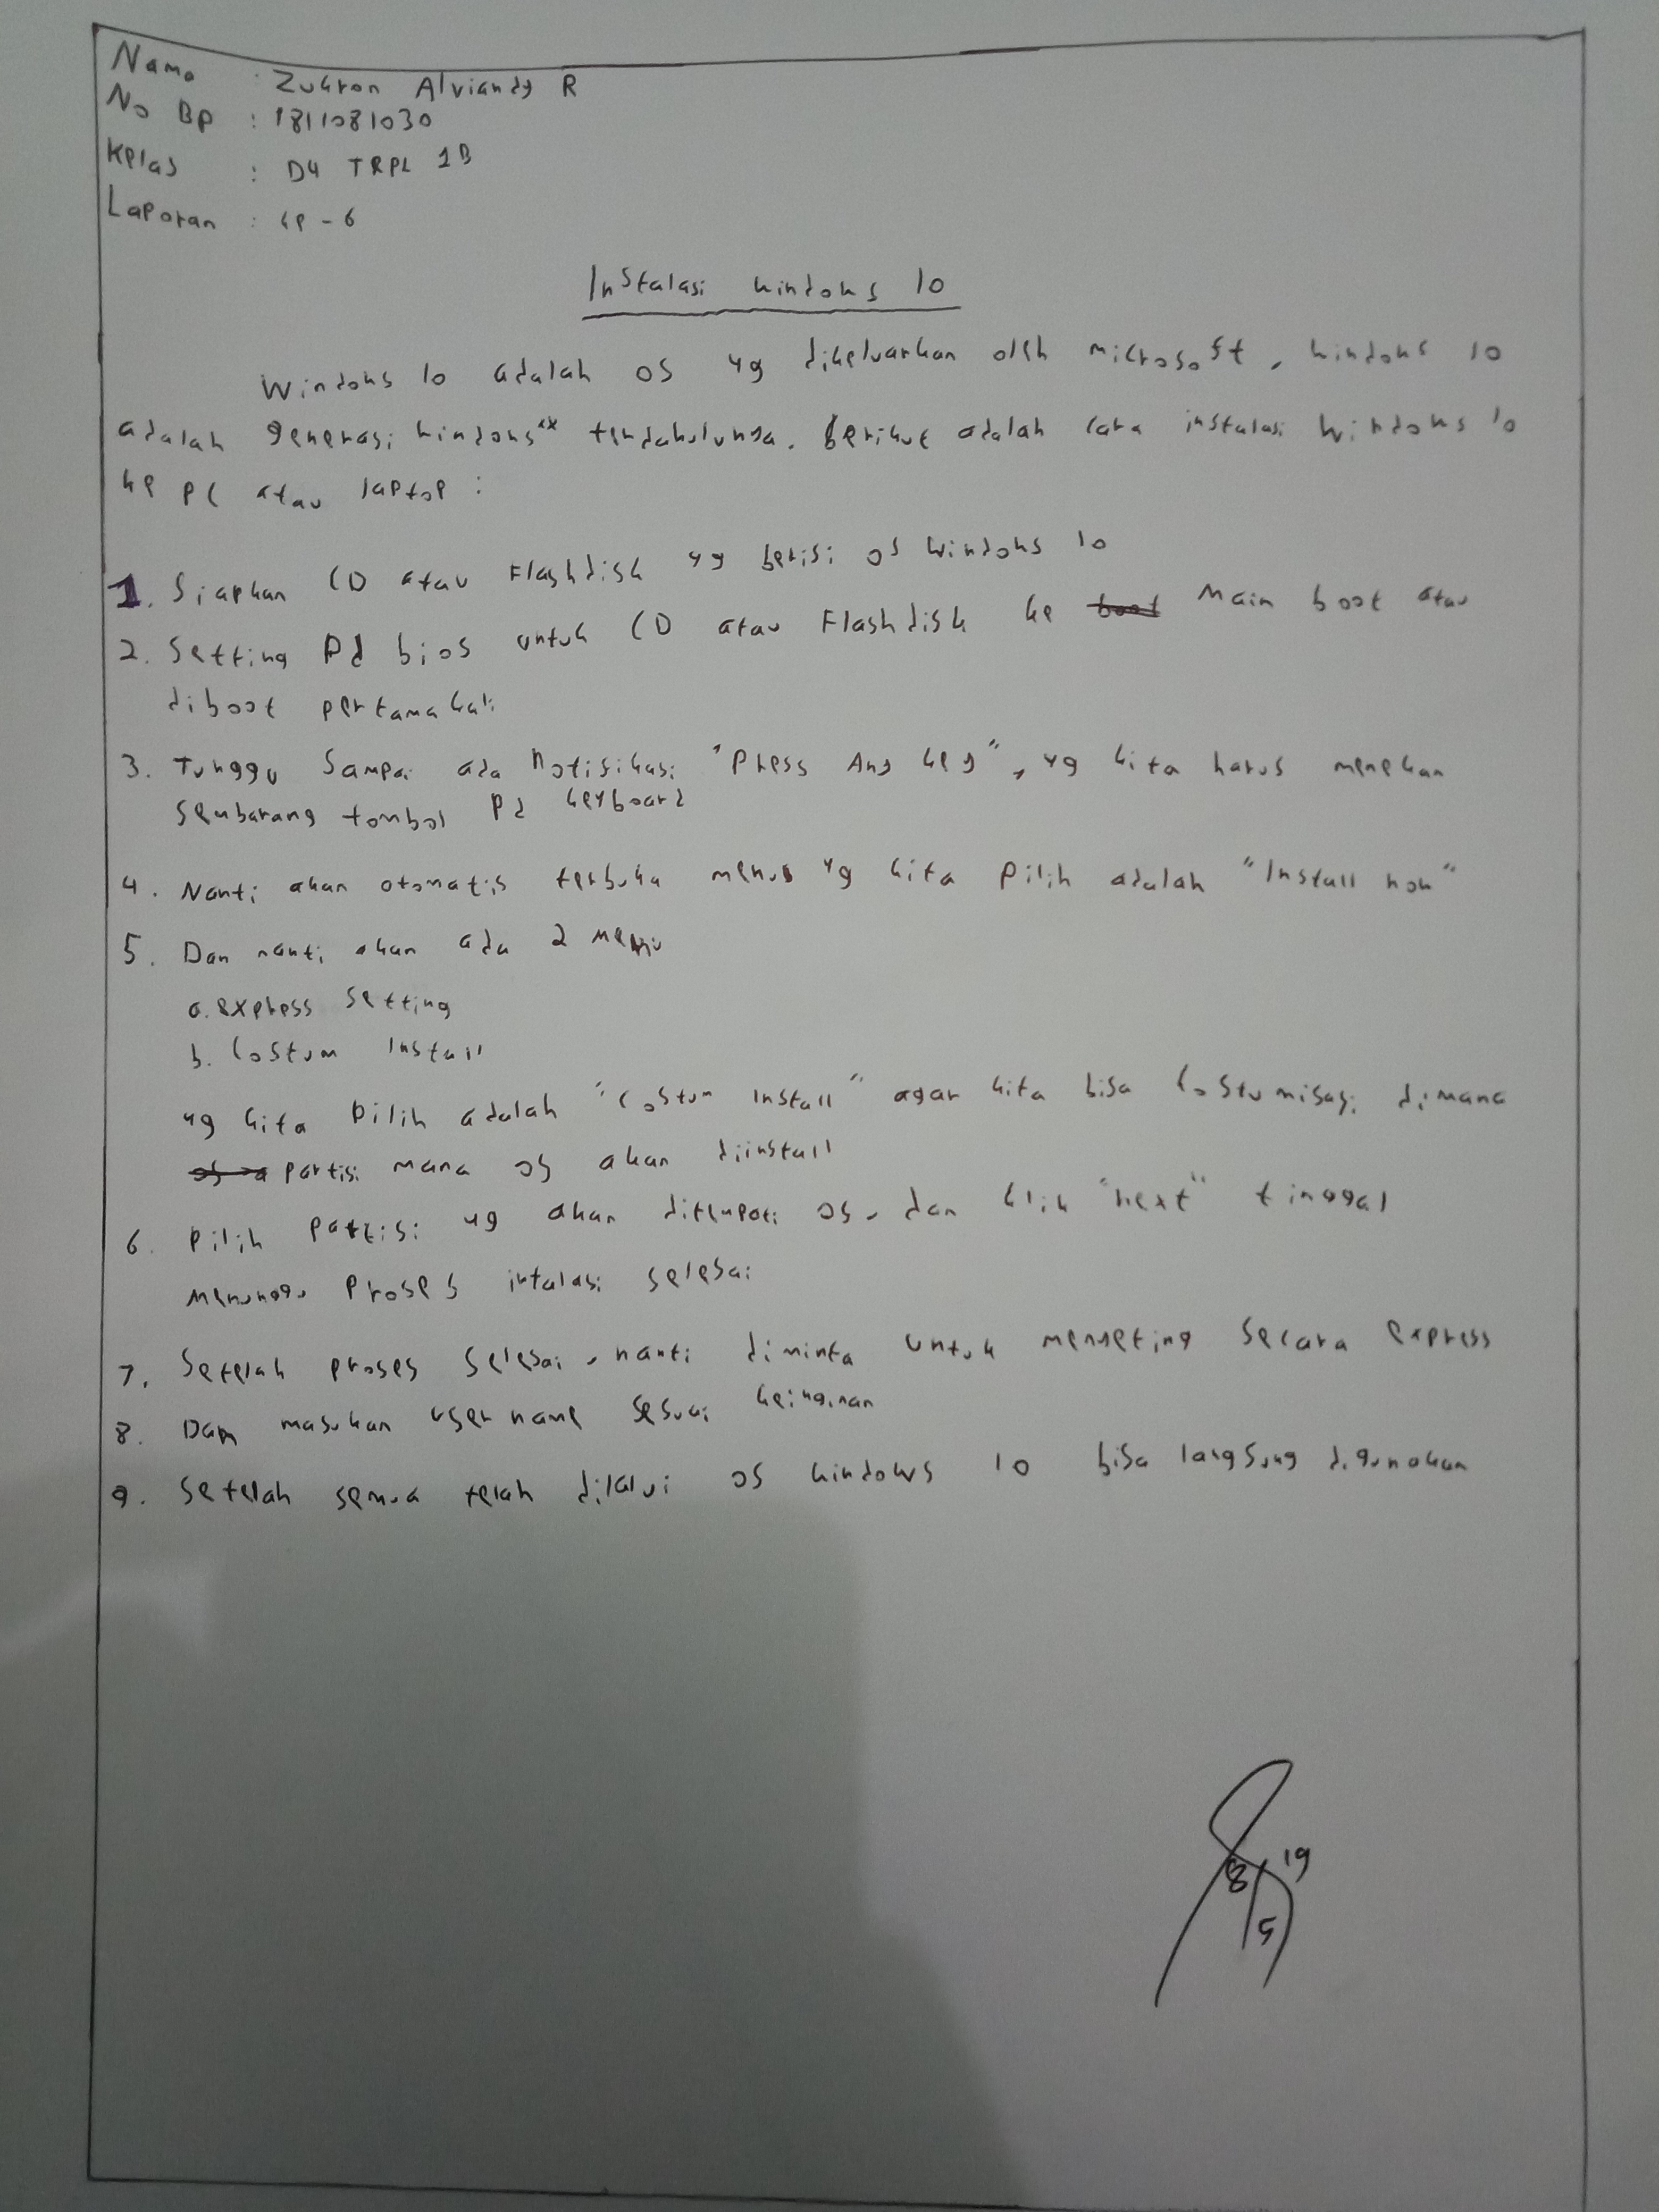 Nama : Zukron Alviandy R
No Bp : 1811081030
Kelas : D4 TRPL 1B
Laporan : ke - 6
Instalasi windows 10
Windows 10 adalah OS yg dikeluarkan oleh microsoft, windows 10
adalah generasi windows terdahulunya. Berikut adalah cara instalasi Windows 10
ke PC atau laptop :
1. Siapkan CD atau Flashdisk yg berisi OS Windows 10
2. Setting Pd bios untuk CD atau Flashdisk ke boot Main boot atau
diboot pertamakali
3. Tunggu Sampai ada Notifikasi "Press Any key", yg kita harus menekan
Sembarang tombol Pd keyboard
4. Nanti akan otomatis terbuka menu yg kita Pilih adalah "Install now"
5. Dan nanti akan ada 2 menu
a. express setting
b. Costum Install
yg kita Pilih adalah "Costum Install" agar kita bisa Costumisasi dimana
partisi mana os akan diinstall
6. Pilih partisi yg akan ditempati os, dan klik "next" tinggal
menunggu Proses intalasi selesai
7. Setelah proses selesai, nanti diminta untuk menseting secara express
8. Dan masukan username sesuai keinginan
9. Setelah semua telah dilalui OS windows 10 bisa langsung digunakan
8/5 19